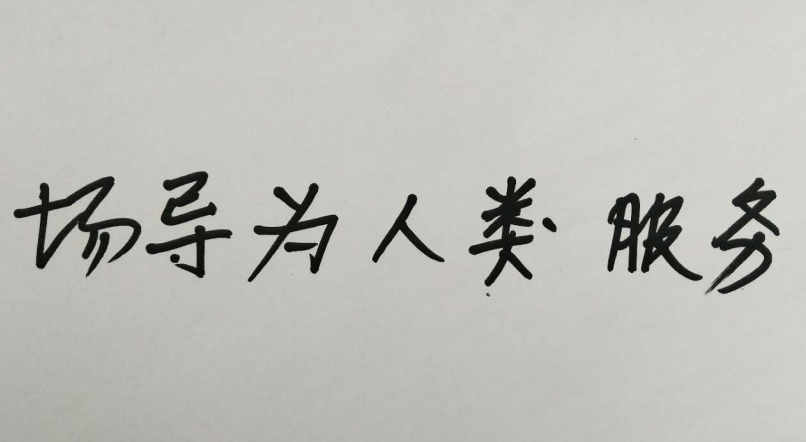 场导为人类服务